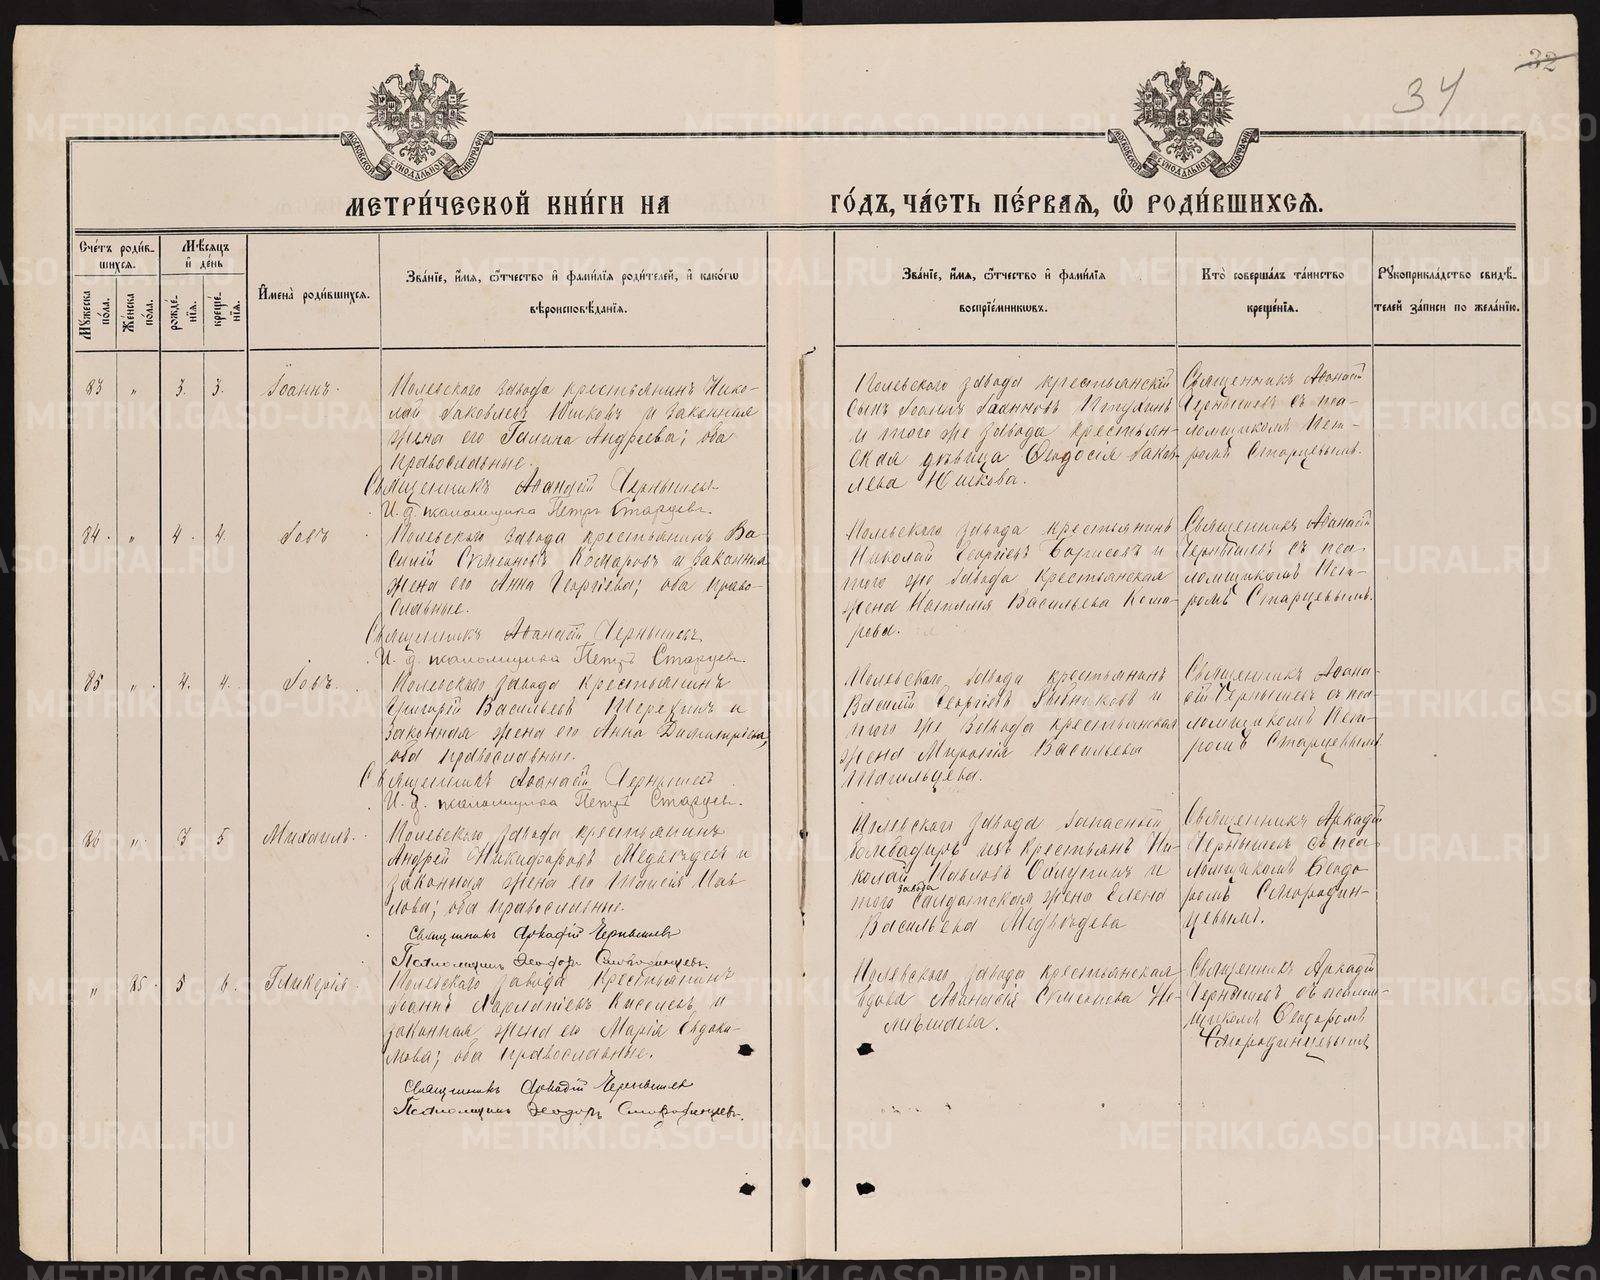 32
34
МОСКОВСКОЙ СѴНОДАЛЬНОЙ ТИПОГРАФІИ
МОСКОВСКОЙ СѴНОДАЛЬНОЙ ТИПОГРАФІИ
МЕТРИ́ЧЕСКОЙ КНИ́ГИ НА ГО́ДЪ, ЧА́СТЬ ПЕ́РВАѦ, Ѡ҆ РОДИ́ВШИХСѦ.
Сче́тъ роди́в-
шихсѧ.
Мѣ́сѧцъ
и҆ де́нь
Мꙋ́жеска по́ла.
Же́нска по́ла.
рожде́-
нїѧ.
креще́-
нїѧ.
И҆мена̀ роди́вшихсѧ.
Зва́нїе, и҆́мѧ, ѻ҆́тчество и҆ фами́лїѧ роди́телей, и҆ како́гѡ
вѣроисповѣ́данїѧ.
Зва́нїе, и҆́мѧ, ѻ҆́тчество и҆ фами́лїѧ
воспрїе́мникѡвъ.
Кто̀ соверша́лъ та́инство
креще́нїѧ.
Рꙋкоприкла́дство свидѣ́-
телей за́писи по жела́нїю.
83 " 3. 3. Іоаннъ.
Полевского завода крестьянинъ Нико-
лай Іаковлевъ Юшковъ и законная
жена его Галина Андреева; оба
православные.
Священникъ Аѳанасій Чернышевъ
И. д. псаломщика Петръ Старцевъ.
Полевского завода крестьянскій
сынъ Іоаннъ Іоанновъ Пѣтухинъ
и того же завода крестьян-
ская дѣвица Ѳеодосія Іаков-
лева Юшкова.
Священникъ Аѳанасій
Чернышевъ съ пса-
ломщикомъ Пет-
ромъ Старцевымъ.
84. " 4. 4. Іовъ
Полевского завода крестьянинъ Ва-
силій Семеновъ Комаровъ и законная
жена его Анна Георгіева; оба право-
славные.
Священникъ Аѳанасій Чернышевъ
И. д. псаломщика Петръ Старцевъ.
Полевского завода крестьянинъ
Николай Георгіевъ Борисовъ и
того же завода крестьянская
жена Наталія Васильева Кома-
рова.
Священникъ Аѳанасій
Чернышевъ съ пса-
ломщикомъ Пет-
ромъ Старцевымъ.
85 " 4. 4. Іовъ.
Полевского завода крестьянинъ
Григорій Васильевъ и
законная жена его Анна Димитріева,
оба православные.
Священникъ Аѳанасій Чернышевъ
И. д. псаломщика Петръ Старцевъ.
Полевского завода крестьянинъ
Василій Георгіевъ и
того же завода крестьянская
жена Миронія Васильева
Тагильцева.
Священникъ Аѳана-
сій Чернышевъ съ пса-
ломщикомъ Пет-
ромъ Старцевымъ
86 " 3 5 Михаилъ.
Полевского завода крестьянинъ
Андрей Никифоровъ Медвѣдевъ и
законная жена его Таисія Пав-
лова; оба православные.
Священникъ Аркадій Чернышевъ
Псаломщикъ Ѳеодоръ Смородинцевъ.
Полевского завода запасный
бомбадиръ изъ крестьянъ Ни-
колай Павловъ и
того завода солдатская жена Елена
Васильева Медвѣдева
Священникъ Аркадій
Чернышевъ съ пса-
ломщикомъ Ѳеодо-
ромъ Смородин-
цевымъ.
" 25. 5 6. Гликерія.
Полевского завода крестьянинъ
Іоаннъ Харлампіевъ Киселевъ и
законная жена его Марія Евдоки-
мова; оба православные.
Священникъ Аркадій Чернышев
Псаломщикъ Ѳеодоръ Смородинцевъ.
Полевского завода крестьянская
вдова Аѳанасія Семенова Не-
мѣшаева.
Священникъ Аркадій
Чернышевъ съ псалом-
щикомъ Ѳеодоромъ
Смородинцевымъ
METRIKI.GASO-URAL.RU